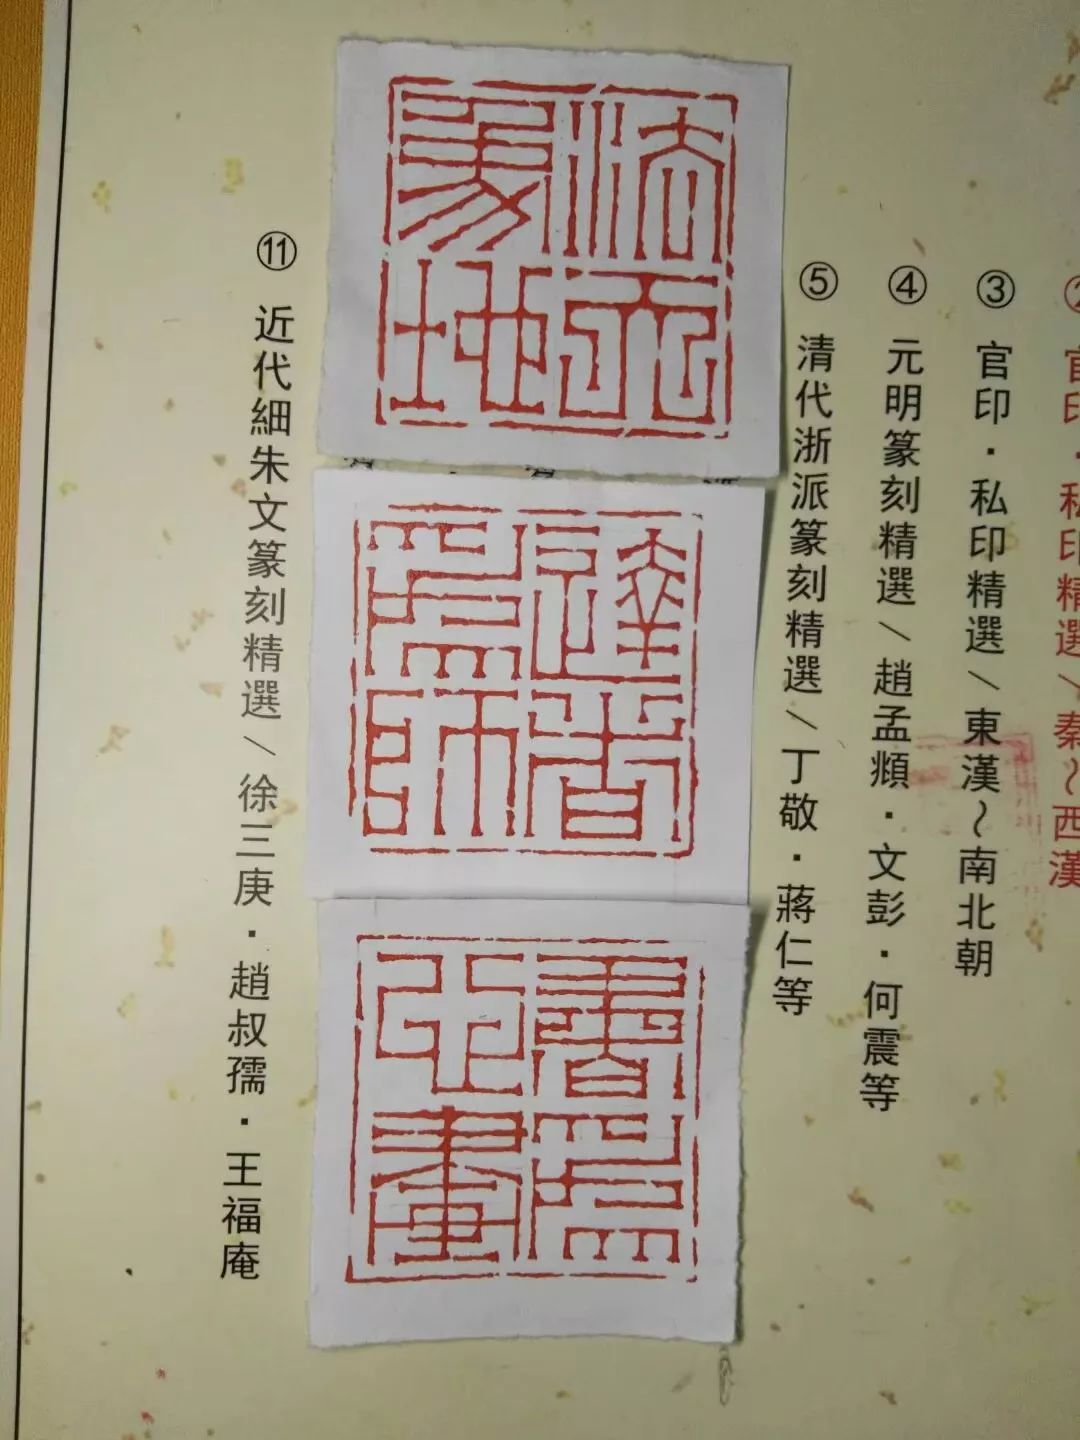 ② 官印・私印精選／秦～西漢
③ 官印・私印精選／東漢～南北朝
④ 元明篆刻精選／趙孟頫・文彭・何震等
⑤ 清代浙派篆刻精選／丁敬・蔣仁等
法天
象地
達者
爲師
書爲
心畫
⑪ 近代細朱文篆刻精選／徐三庚・趙叔孺・王福庵